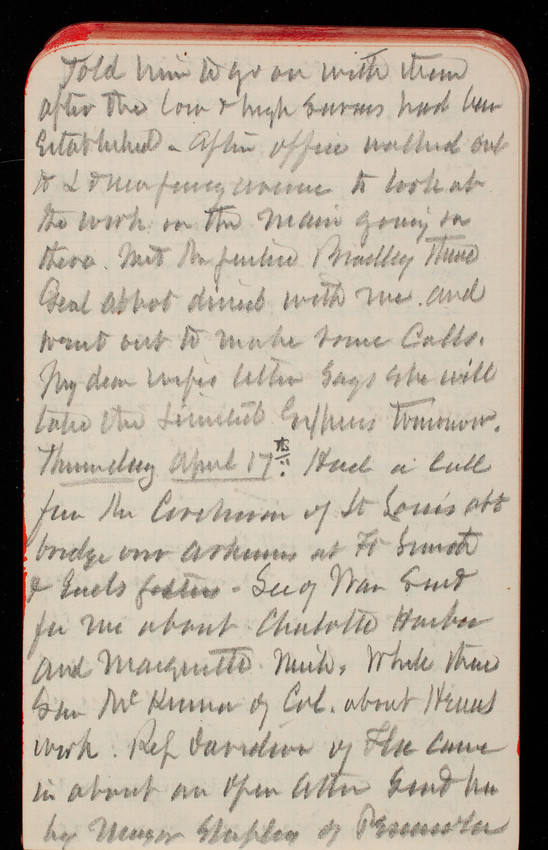 Told him to go on with them
after the low & high curves had been
Established. After office walked out
to to look at
the work on the main going on
there. Met Mr Bradley there
Genl Abbot dined with me. and
went out to make some Calls.
My dear wife's letter says she will
take the Limited Express tomorrow.
Thursday April 17th: Had a call
from Mr of St Louis abt
bridge over Arkansas at Ft Smith
& . Sec of War Send
for me about Charlotte Harbor
and Marquette Mich. While there
Gen McKenna of Cal. about
work. Rep Davidson of Fla came
in about an open letter Send him
by Mayor of Pensacola